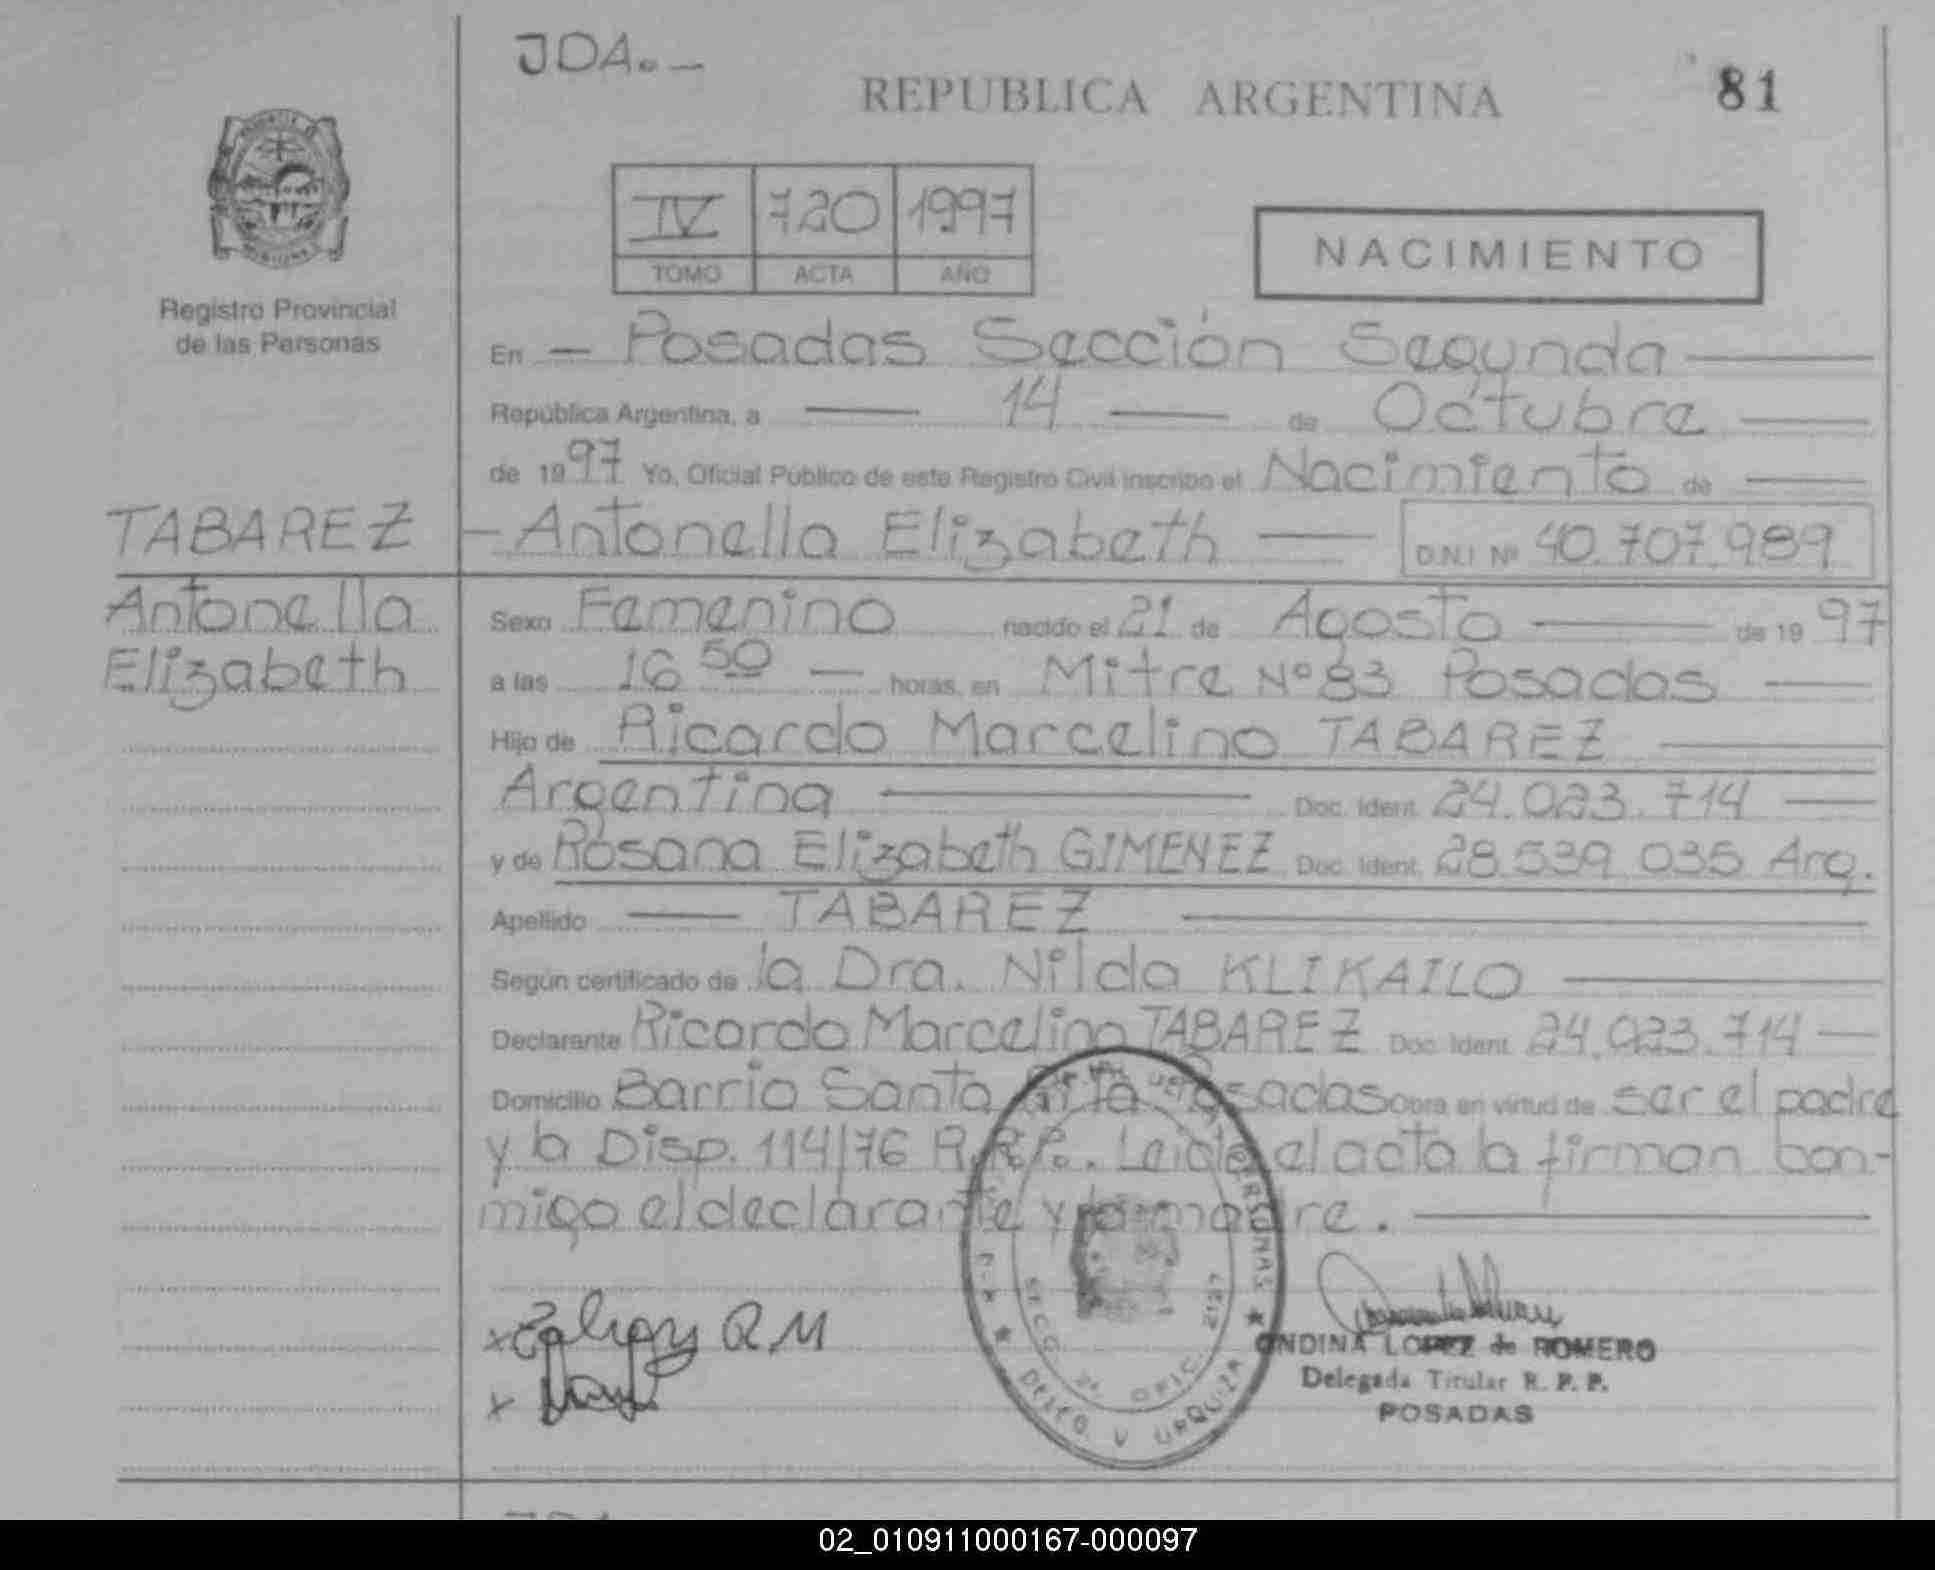 JDA.-
REPUBLICA ARGENTINA 81
IV 720 1997
TOMO ACTA AÑO
NACIMIENTO
Registro Provincial
de las Personas
En — Posadas Sección Segunda —
República Argentina, a — 14 — de Octubre —
de 1997 Yo, Oficial Público de este Registro Civil inscribo el Nacimiento de —
TABAREZ
Antonella
Elizabeth
- Antonella Elizabeth — D.N.I Nº 40.707.989
Sexo Femenino nacido el 21 de Agosto — de 1997
a las 16 50 — horas, en Mitre Nº 83 Posadas —
Hijo de Ricardo Marcelino TABAREZ —
Argentina — Doc. Ident. 24.023.714 —
y de Rosana Elizabeth GIMENEZ Doc. Ident. 28.539.035 Arg.
Apellido — TABAREZ —
Según certificado de la Dra. Nilda KLIKAILO —
Declarante Ricardo Marcelino TABAREZ Doc. Ident. 24.023.714 —
Domicilio Barrio Santa Rita Posadas Obra en virtud de ser el padre
y la Disp. 114/76 R.R.P.. Leída el acta la firman con-
migo el declarante y la madre. —
PERSONAS
SECC. 2ª OFIC. 2127
DELEG. V URQUIZA
x R M
x
ONDINA LOPEZ de ROMERO
Delegada Titular R. P. P.
POSADAS
02_010911000167-000097